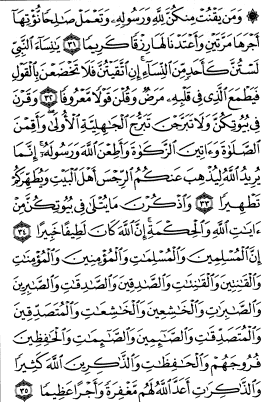 ۞ وَمَن يَقْنُتْ مِنكُنَّ لِلَّهِ وَرَسُولِهِۦ وَتَعْمَلْ صَٰلِحًا نُّؤْتِهَآ
أَجْرَهَا مَرَّتَيْنِ وَأَعْتَدْنَا لَهَا رِزْقًا كَرِيمًا ٣١ يَٰنِسَآءَ ٱلنَّبِىِّ
لَسْتُنَّ كَأَحَدٍ مِّنَ ٱلنِّسَآءِ ۚ إِنِ ٱتَّقَيْتُنَّ فَلَا تَخْضَعْنَ بِٱلْقَوْلِ
فَيَطْمَعَ ٱلَّذِى فِى قَلْبِهِۦ مَرَضٌ وَقُلْنَ قَوْلًا مَّعْرُوفًا ٣٢ وَقَرْنَ
فِى بُيُوتِكُنَّ وَلَا تَبَرَّجْنَ تَبَرُّجَ ٱلْجَٰهِلِيَّةِ ٱلْأُولَىٰ ۖ وَأَقِمْنَ
ٱلصَّلَوٰةَ وَءَاتِينَ ٱلزَّكَوٰةَ وَأَطِعْنَ ٱللَّهَ وَرَسُولَهُۥٓ ۚ إِنَّمَا
يُرِيدُ ٱللَّهُ لِيُذْهِبَ عَنكُمُ ٱلرِّجْسَ أَهْلَ ٱلْبَيْتِ وَيُطَهِّرَكُمْ
تَطْهِيرًا ٣٣ وَٱذْكُرْنَ مَا يُتْلَىٰ فِى بُيُوتِكُنَّ مِنْ
ءَايَٰتِ ٱللَّهِ وَٱلْحِكْمَةِ ۚ إِنَّ ٱللَّهَ كَانَ لَطِيفًا خَبِيرًا ٣٤
إِنَّ ٱلْمُسْلِمِينَ وَٱلْمُسْلِمَٰتِ وَٱلْمُؤْمِنِينَ وَٱلْمُؤْمِنَٰتِ
وَٱلْقَٰنِتِينَ وَٱلْقَٰنِتَٰتِ وَٱلصَّٰدِقِينَ وَٱلصَّٰدِقَٰتِ وَٱلصَّٰبِرِينَ
وَٱلصَّٰبِرَٰتِ وَٱلْخَٰشِعِينَ وَٱلْخَٰشِعَٰتِ وَٱلْمُتَصَدِّقِينَ
وَٱلْمُتَصَدِّقَٰتِ وَٱلصَّٰٓئِمِينَ وَٱلصَّٰٓئِمَٰتِ وَٱلْحَٰفِظِينَ
فُرُوجَهُمْ وَٱلْحَٰفِظَٰتِ وَٱلذَّٰكِرِينَ ٱللَّهَ كَثِيرًا
وَٱلذَّٰكِرَٰتِ أَعَدَّ ٱللَّهُ لَهُم مَّغْفِرَةً وَأَجْرًا عَظِيمًا ٣٥